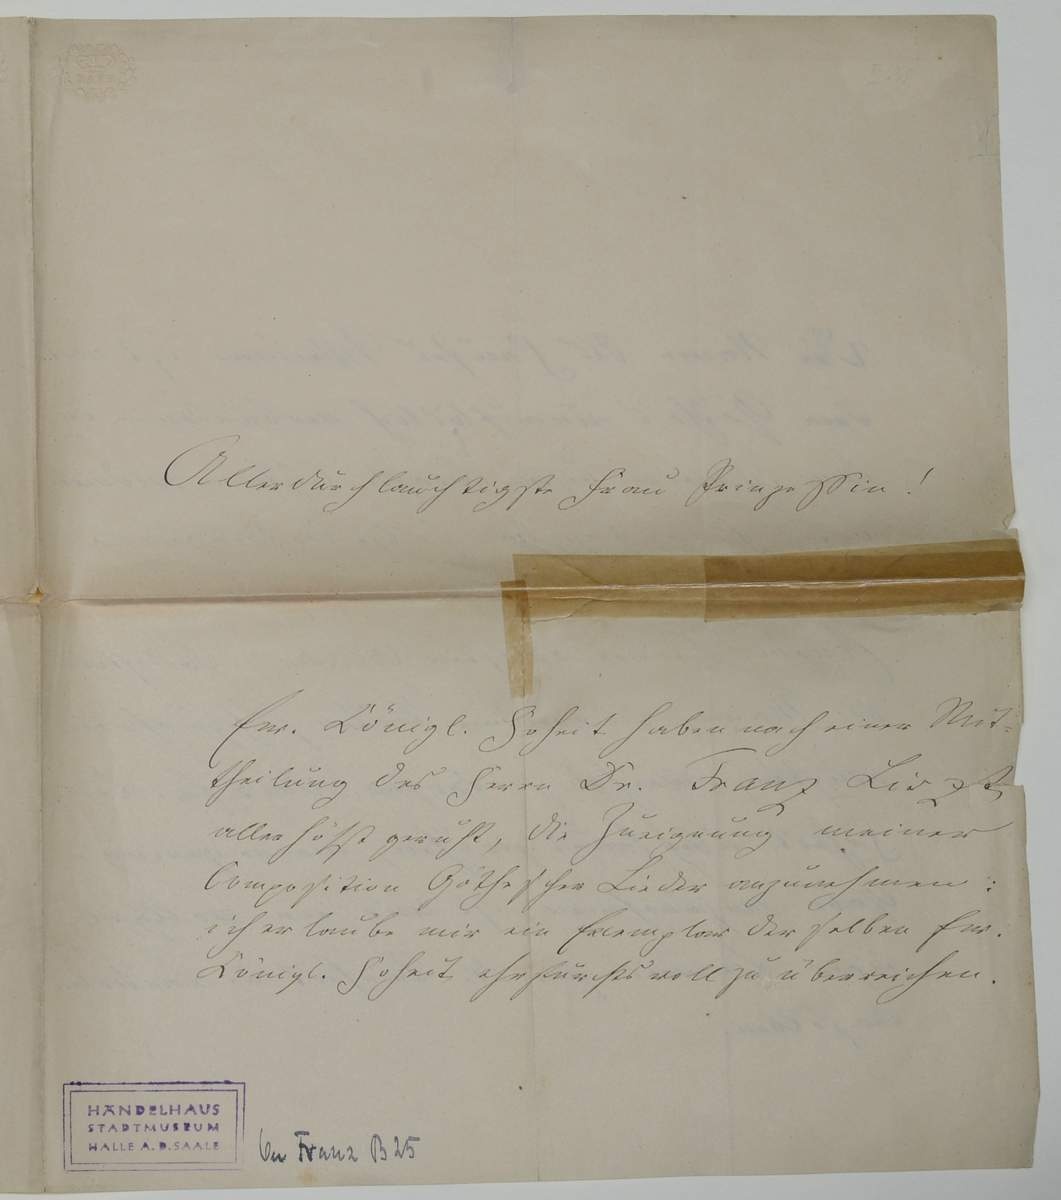 Allerdurchlauchtigste Frau Prinzessin!
Ew. Königl. Hoheit haben nach einer Mit-
theilung des Herrn Dr. Franz Liszt
allerhöchst geruht, die Zueignung meiner
Composition Göthescher Lieder anzunehmen:
ich erlaube mir ein Exemplar derselben Ew.
Königl. Hoheit ehrfurchtsvoll zu überreichen.
HÄNDELHAUS
STADTMUSEUM
HALLE A. D. SAALE
Franz B 25